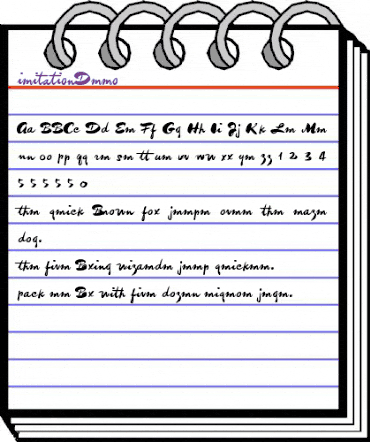 imitationDmmo
Aa BBCc Dd Em Ff Gg Hh Ii Jj Kk Lm Mm
nn oo pp qq rm sm tt um vv ww xx ym zz 1 2 3 4
5 5 5 5 5 0
thm qmick Bnown fox jmmpm ovmm thm mazm
dog.
thm fivm Bxing wizamdm jmmp qmickmm.
pack mm Bx with fivm dozmn miqmom jmgm.